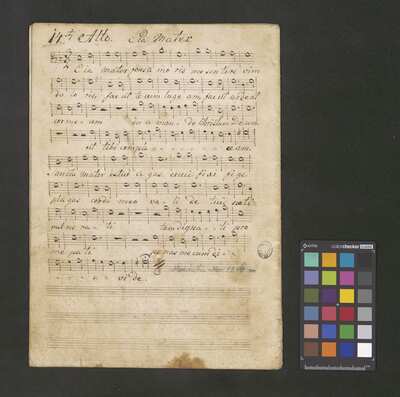 14. Alto. Eia Mater
Eia mater fons a mo ris me sentire vim
do lo ris fac ut te cum luge am, fac ut ardeat
cor me am in a man do Christum Deum
ut sibi compla ce am.
ancta mater istud a gas, cruci fixi fige
plagas cordi meo va li de tui nate
vulne ra ti tam digna ti pro
me pa ti pœnas me cum di
vi de.
colorchecker